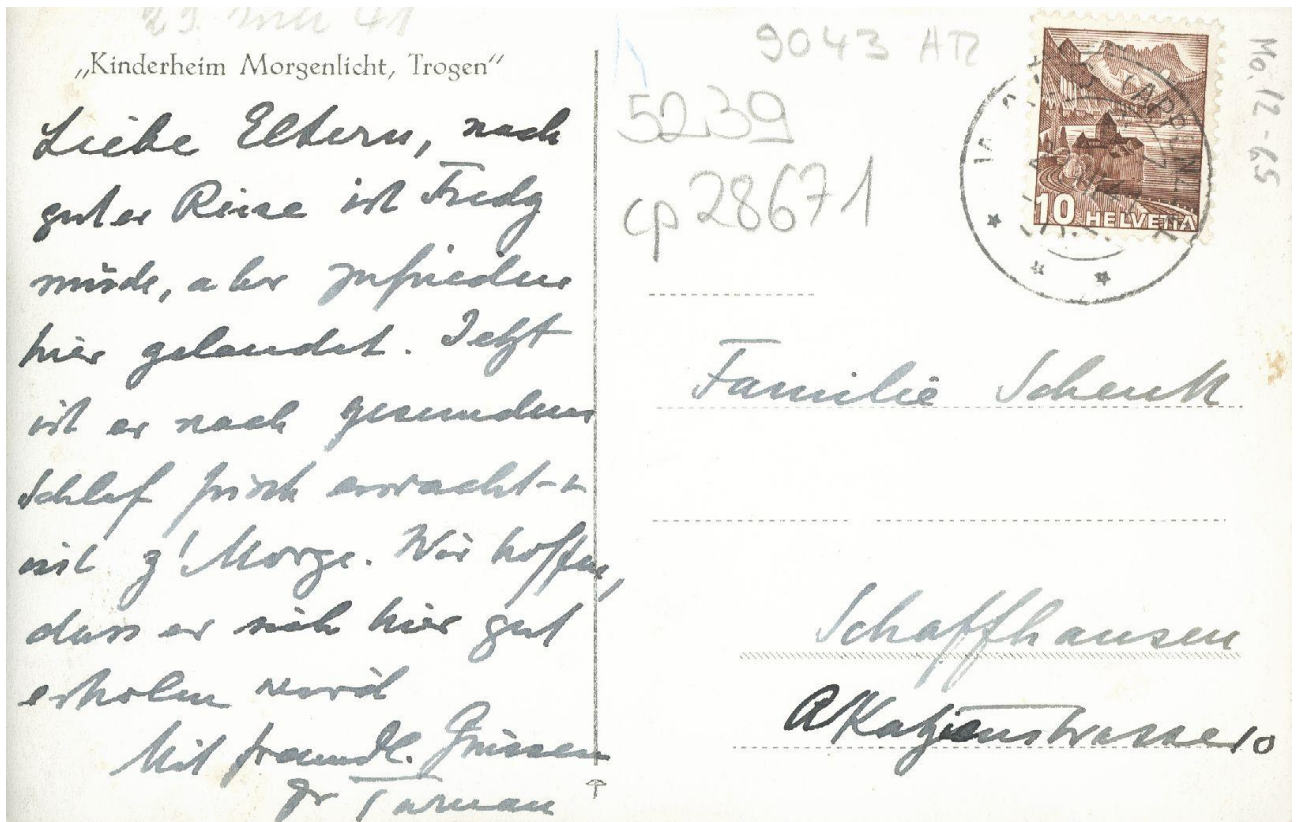 „Kinderheim Morgenlicht, Trogen“
Liebe Eltern, nach
guter Reise ist Fredy
müde, aber zufrieden
hier gelandet. Jetzt
ist er nach gesundem
Schlaf frisch erwacht u
isst z'Morge. Wir hoffen,
dass er sich hier gut
erholen wird
Mit freundl. Grüssen
9043 AR
5239
cp 28671
Mo. 12-65
10 HELVETIA
Familie Schenk
Schaffhausen